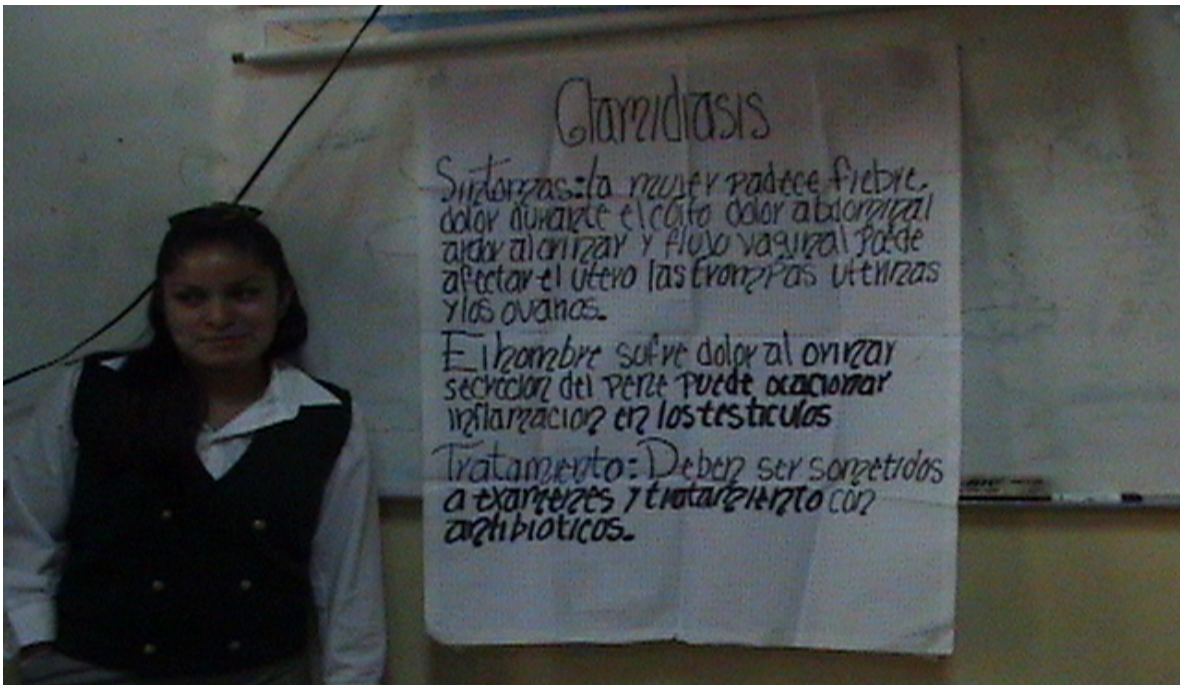 Clamidiasis
Sintomas: la mujer padece fiebre,
dolor durante el coito dolor abdominal
ardor al orinar y flujo vaginal Puede
afectar el utero las trompas uterinas
y los ovarios.
El hombre sufre dolor al orinar
secrecion del pene puede ocacionar
inflamacion en los testiculos
Tratamiento: Deben ser sometidos
a examenes y tratamiento con
antibioticos.